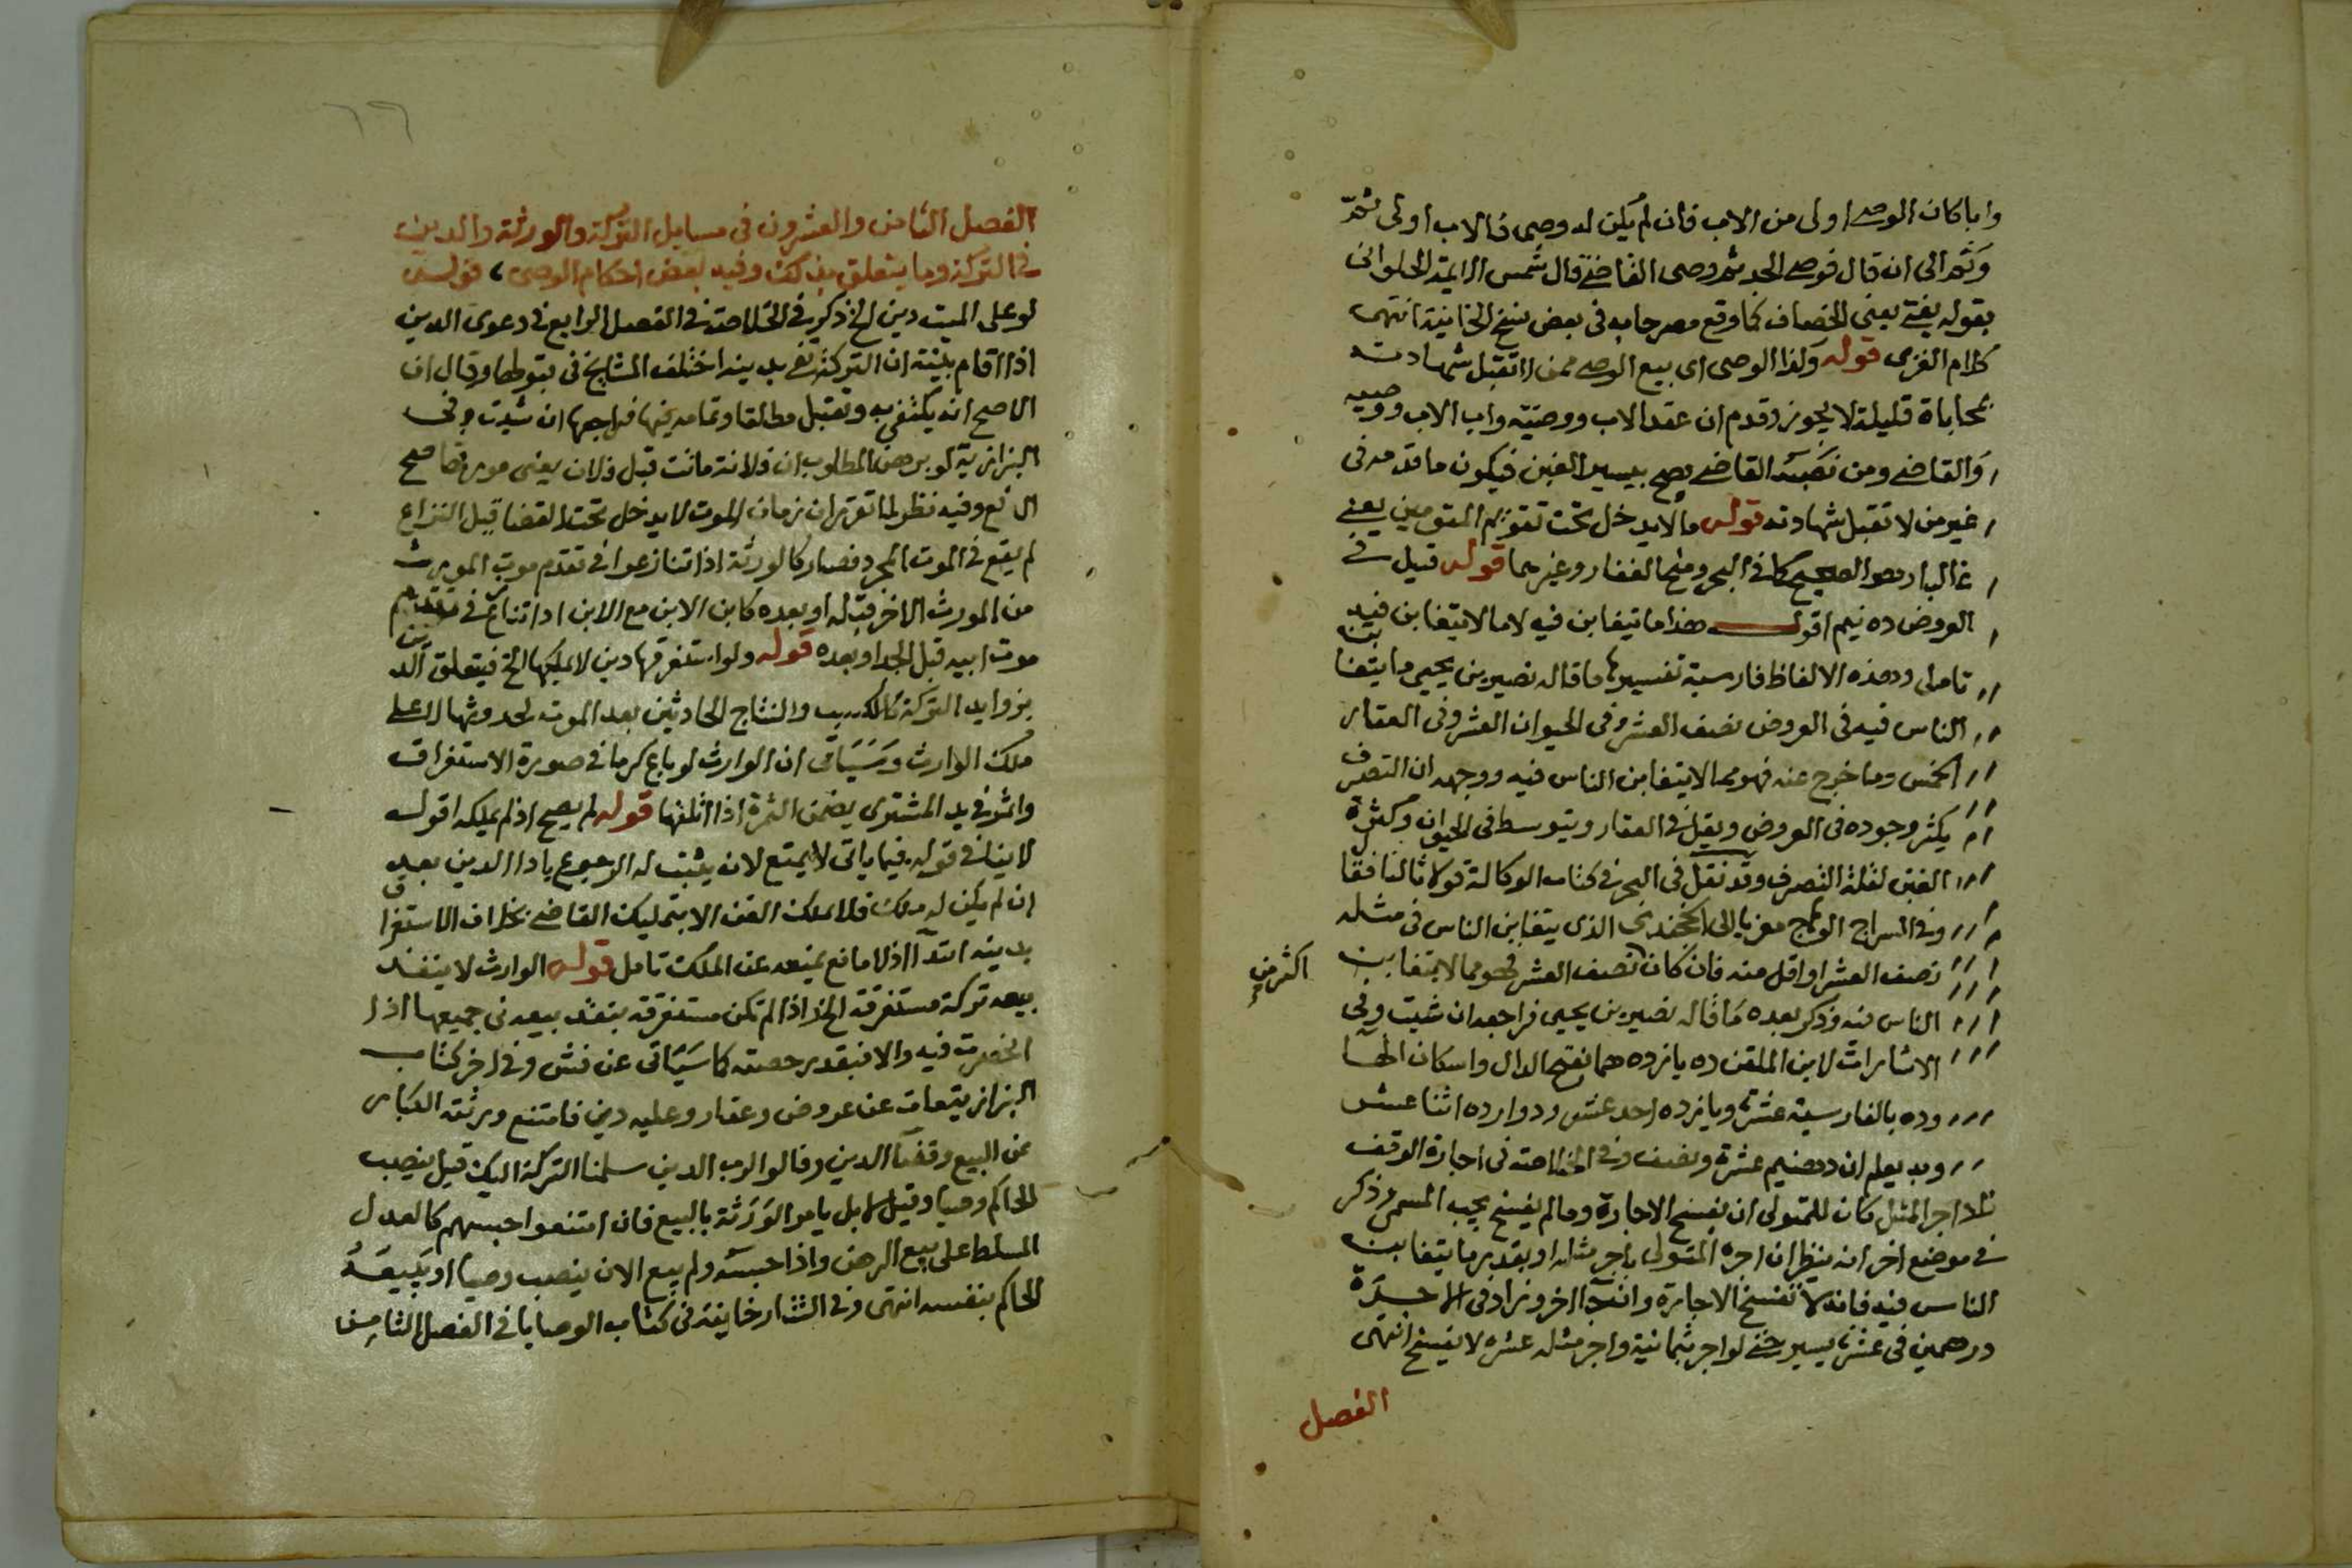 وابا كان الوصي اولى من الاب فان لم يكن له وصي فالاب اولى ثم
وثم الى ان قال فوصي الجد ثم وصي القاضي قال شمس الايمة الحلواني
بقوله يفتى يعني الخصاف كما وقع مصرحا به في بعض نسخ الخانية انتهى
كلام الغزى قوله وكذا الوصي اى بيع الوصي ممن لا تقبل شهادته
بمحاباة قليلة لا يجوز وقدم ان عقد الاب ووصيّه واب الاب ووصيه
والقاضي ومن نصبه القاضي يصح بيسير الغبن فيكون ما قدمه في
غير من لا تقبل شهادته قوله مالا يدخل تحت تقويم المقومين يعني
غالبا وهو الصحيح كما في البحر ومنح الغفار وغيرهما قوله قيل في
العروض ده نيم اقول هذا ما يتغابن فيه لا ما لا يتغابن فيه
تامل وهذه الالفاظ فارسية تفسيرها ما قاله نصير بن يحيى ما يتغابن
الناس فيه في العروض نصف العشر وفي الحيوان العشر وفي العقار
الخمس وما خرج عنه فهو مما لا يتغابن الناس فيه ووجهه ان التصرف
يكثر وجوده في العروض ويقل في العقار ويتوسط في الحيوان وكثرة
الغبن لقلة التصرف وقد نقل في البحر في كتاب الوكالة قولا ثالثا فقا
وفي السراج الوهاج معزيا الى الخجندى الذى يتغابن الناس في مثله
نصف العشر او اقل منه فان كان اكثر من نصف العشر فهو مما لا يتغابن
الناس فيه وذكر بعده ما قاله نصير بن يحيى فراجعه ان شيت وفي
الاشارات لابن الملقن ده يازده هما بفتح الدال واسكان الها
وده بالفارسية عشرة ويازده احد عشر ودوازده اثنا عشر
وبه يعلم ان ده نيم عشرة ونصف وفي الخلاصة في اجارة الوقف
اجر المثل كان للمتولى ان يفسخ الاجارة وما لم يفسخ يجب المسمى وذكر
في موضع اخر انه ينظر ان اجره المتولى باجر مثله او بقدر ما يتغابن
الناس فيه فانه لا تفسخ الاجارة وان جا اخر وزاد في الاجرة
درهمين في عشرة يسير حتى لو اجر بثمانية واجر مثله عشره لا يفسخ انتهى
الفصل
الفصل الثامن والعشرون في مسايل التركة والورثة والدين
في التركة وما يتعلق بذلك وفيه بعض احكام الوصي، قوله
لو على الميت دين الخ ذكر في الخلاصة في الفصل الرابع في دعوى الدين
اذا اقام بينة ان التركة تفي بدينه اختلف المشايخ في قبولها وقال ان
الاصح انه يكتفى به وتقبل مطلقا وتمامه فيها فراجعها ان شيت وفي
البزازية لو برهن المطلوب ان فلانة ماتت قبل فلان يعني مورثها صح
الدفع وفيه نظر لما تقرر ان زمان الموت لا يدخل تحت القضا قيل النزاع
لم يقع في الموت المجرد فصار كالورثة اذا تنازعوا في تقدم موت المورث
من المورث الاخر قبله او بعده كابن الابن مع الابن اذا تنازع في تقدم
موت ابيه قبل الجد او بعده قوله ولو استغرقها دين لا يملكها الخ فيتعلق الدين
بزوايد التركة كالكسب والنتاج الحادثين بعد الموت لحدوثها لا على
ملك الوارث وسياتي ان الوارث لو باع كرما في صورة الاستغراق
واثمر في يد المشترى يضمن الثمرة اذا اتلفها قوله لم يصح اذ لم يملكه اقول
لا ينافي قوله فيما ياتي لا يمتنع لانه يثبت له الرجوع بادا الدين بعد
ان لم يكن له ملك فلا يملك القن الا بتمليك القاضي بخلاف الاستغراق
بدينه ابتدآ اذ لا مانع يمنعه عن الملك تامل قوله الوارث لا ينفذ
بيعه تركة مستغرقة الخ اذا لم تكن مستغرقة ينفذ بيعه في جميعها اذا
انحصرت فيه والا فبقدر حصته كما سياتي عن فش وفي اخر كتاب
البزازية مات عن عروض وعقار وعليه دين فامتنع ورثته الكبار
عن البيع وقضا الدين وقالوا لرب الدين سلمنا التركة اليك قيل ينصب
الحاكم وصيا وقيل لا بل يامر الورثة بالبيع فان امتنعوا حبسهم كالعدل
المسلط على بيع الرهن واذا حبسه ولم يبع الان ينصب وصيا او يبيعه
الحاكم بنفسه انتهى وفي التتارخانية في كتاب الوصايا في الفصل الثامن